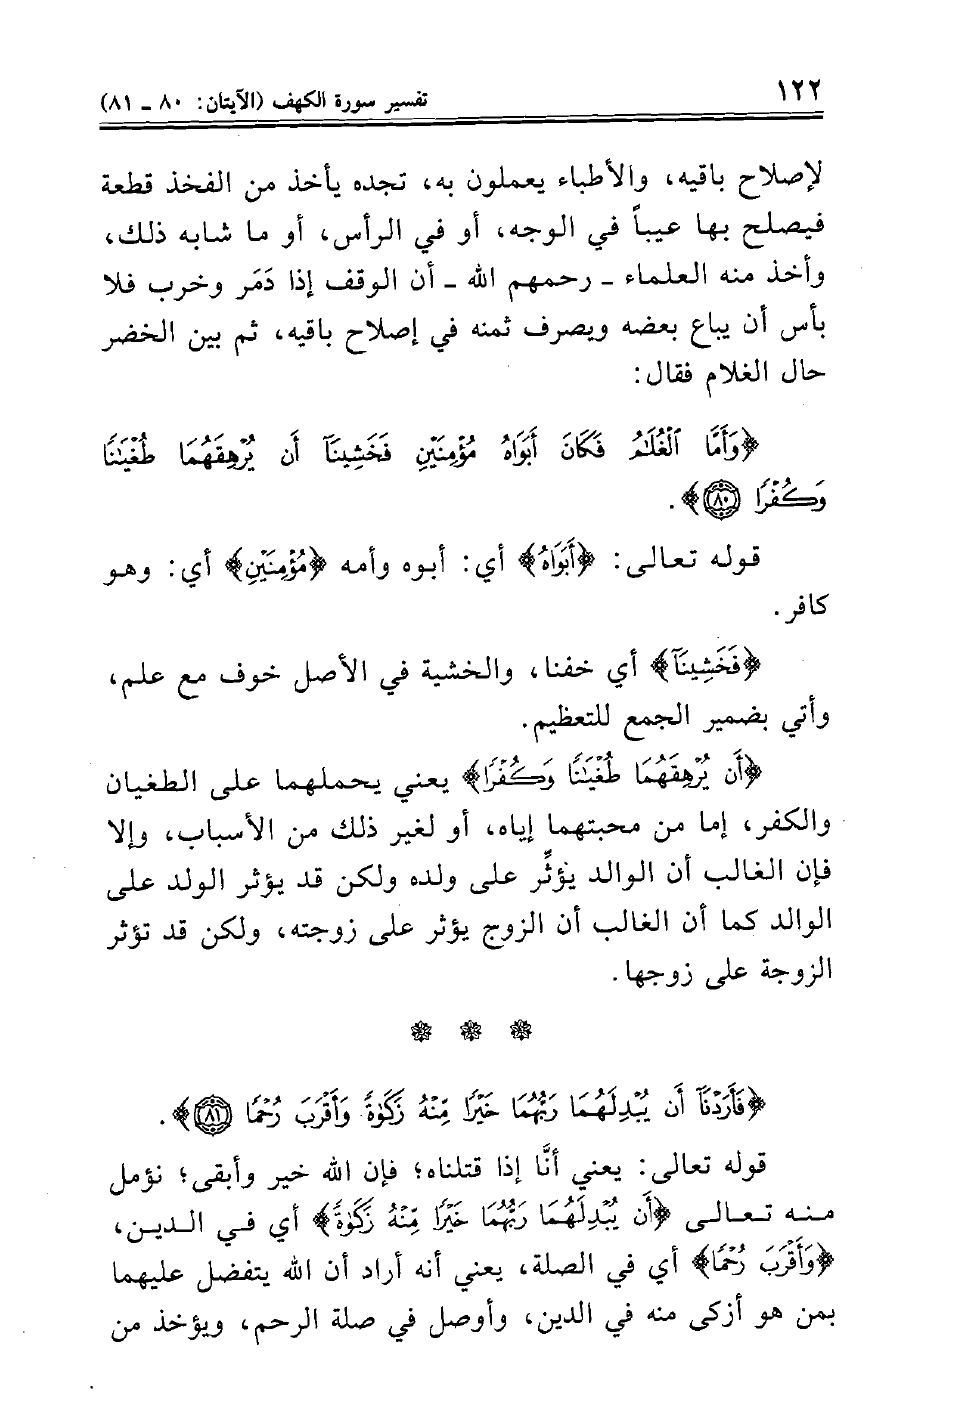 ١٢٢
تفسير سورة الكهف (الآيتان: ٨٠ ـ ٨١)
لإصلاح باقيه، والأطباء يعملون به، تجده يأخذ من الفخذ قطعة
فيصلح بها عيباً في الوجه، أو في الرأس، أو ما شابه ذلك،
وأخذ منه العلماء ـ رحمهم الله ـ أن الوقف إذا دَمَر وخرب فلا
بأس أن يباع بعضه ويصرف ثمنه في إصلاح باقيه، ثم بين الخضر
حال الغلام فقال:
﴿وَأَمَّا ٱلْغُلَٰمُ فَكَانَ أَبَوَاهُ مُؤْمِنَيْنِ فَخَشِينَآ أَن يُرْهِقَهُمَا طُغْيَٰنًا
وَكُفْرًا ٨٠﴾.
قوله تعالى: ﴿أَبَوَاهُ﴾ أي: أبوه وأمه ﴿مُؤْمِنَيْنِ﴾ أي: وهو
كافر.
﴿فَخَشِينَآ﴾ أي خفنا، والخشية في الأصل خوف مع علم،
وأتي بضمير الجمع للتعظيم.
﴿أَن يُرْهِقَهُمَا طُغْيَٰنًا وَكُفْرًا﴾ يعني يحملهما على الطغيان
والكفر، إما من محبتهما إياه، أو لغير ذلك من الأسباب، وإلا
فإن الغالب أن الوالد يؤثِّر على ولده ولكن قد يؤثر الولد على
الوالد كما أن الغالب أن الزوج يؤثر على زوجته، ولكن قد تؤثر
الزوجة على زوجها.
﴿فَأَرَدْنَآ أَن يُبْدِلَهُمَا رَبُّهُمَا خَيْرًا مِّنْهُ زَكَوٰةً وَأَقْرَبَ رُحْمًا ٨١﴾.
قوله تعالى: يعني أنَّا إذا قتلناه؛ فإن الله خير وأبقى؛ نؤمل
منه تعالى ﴿أَن يُبْدِلَهُمَا رَبُّهُمَا خَيْرًا مِّنْهُ زَكَوٰةً﴾ أي في الدين،
﴿وَأَقْرَبَ رُحْمًا﴾ أي في الصلة، يعني أنه أراد أن الله يتفضل عليهما
بمن هو أزكى منه في الدين، وأوصل في صلة الرحم، ويؤخذ من